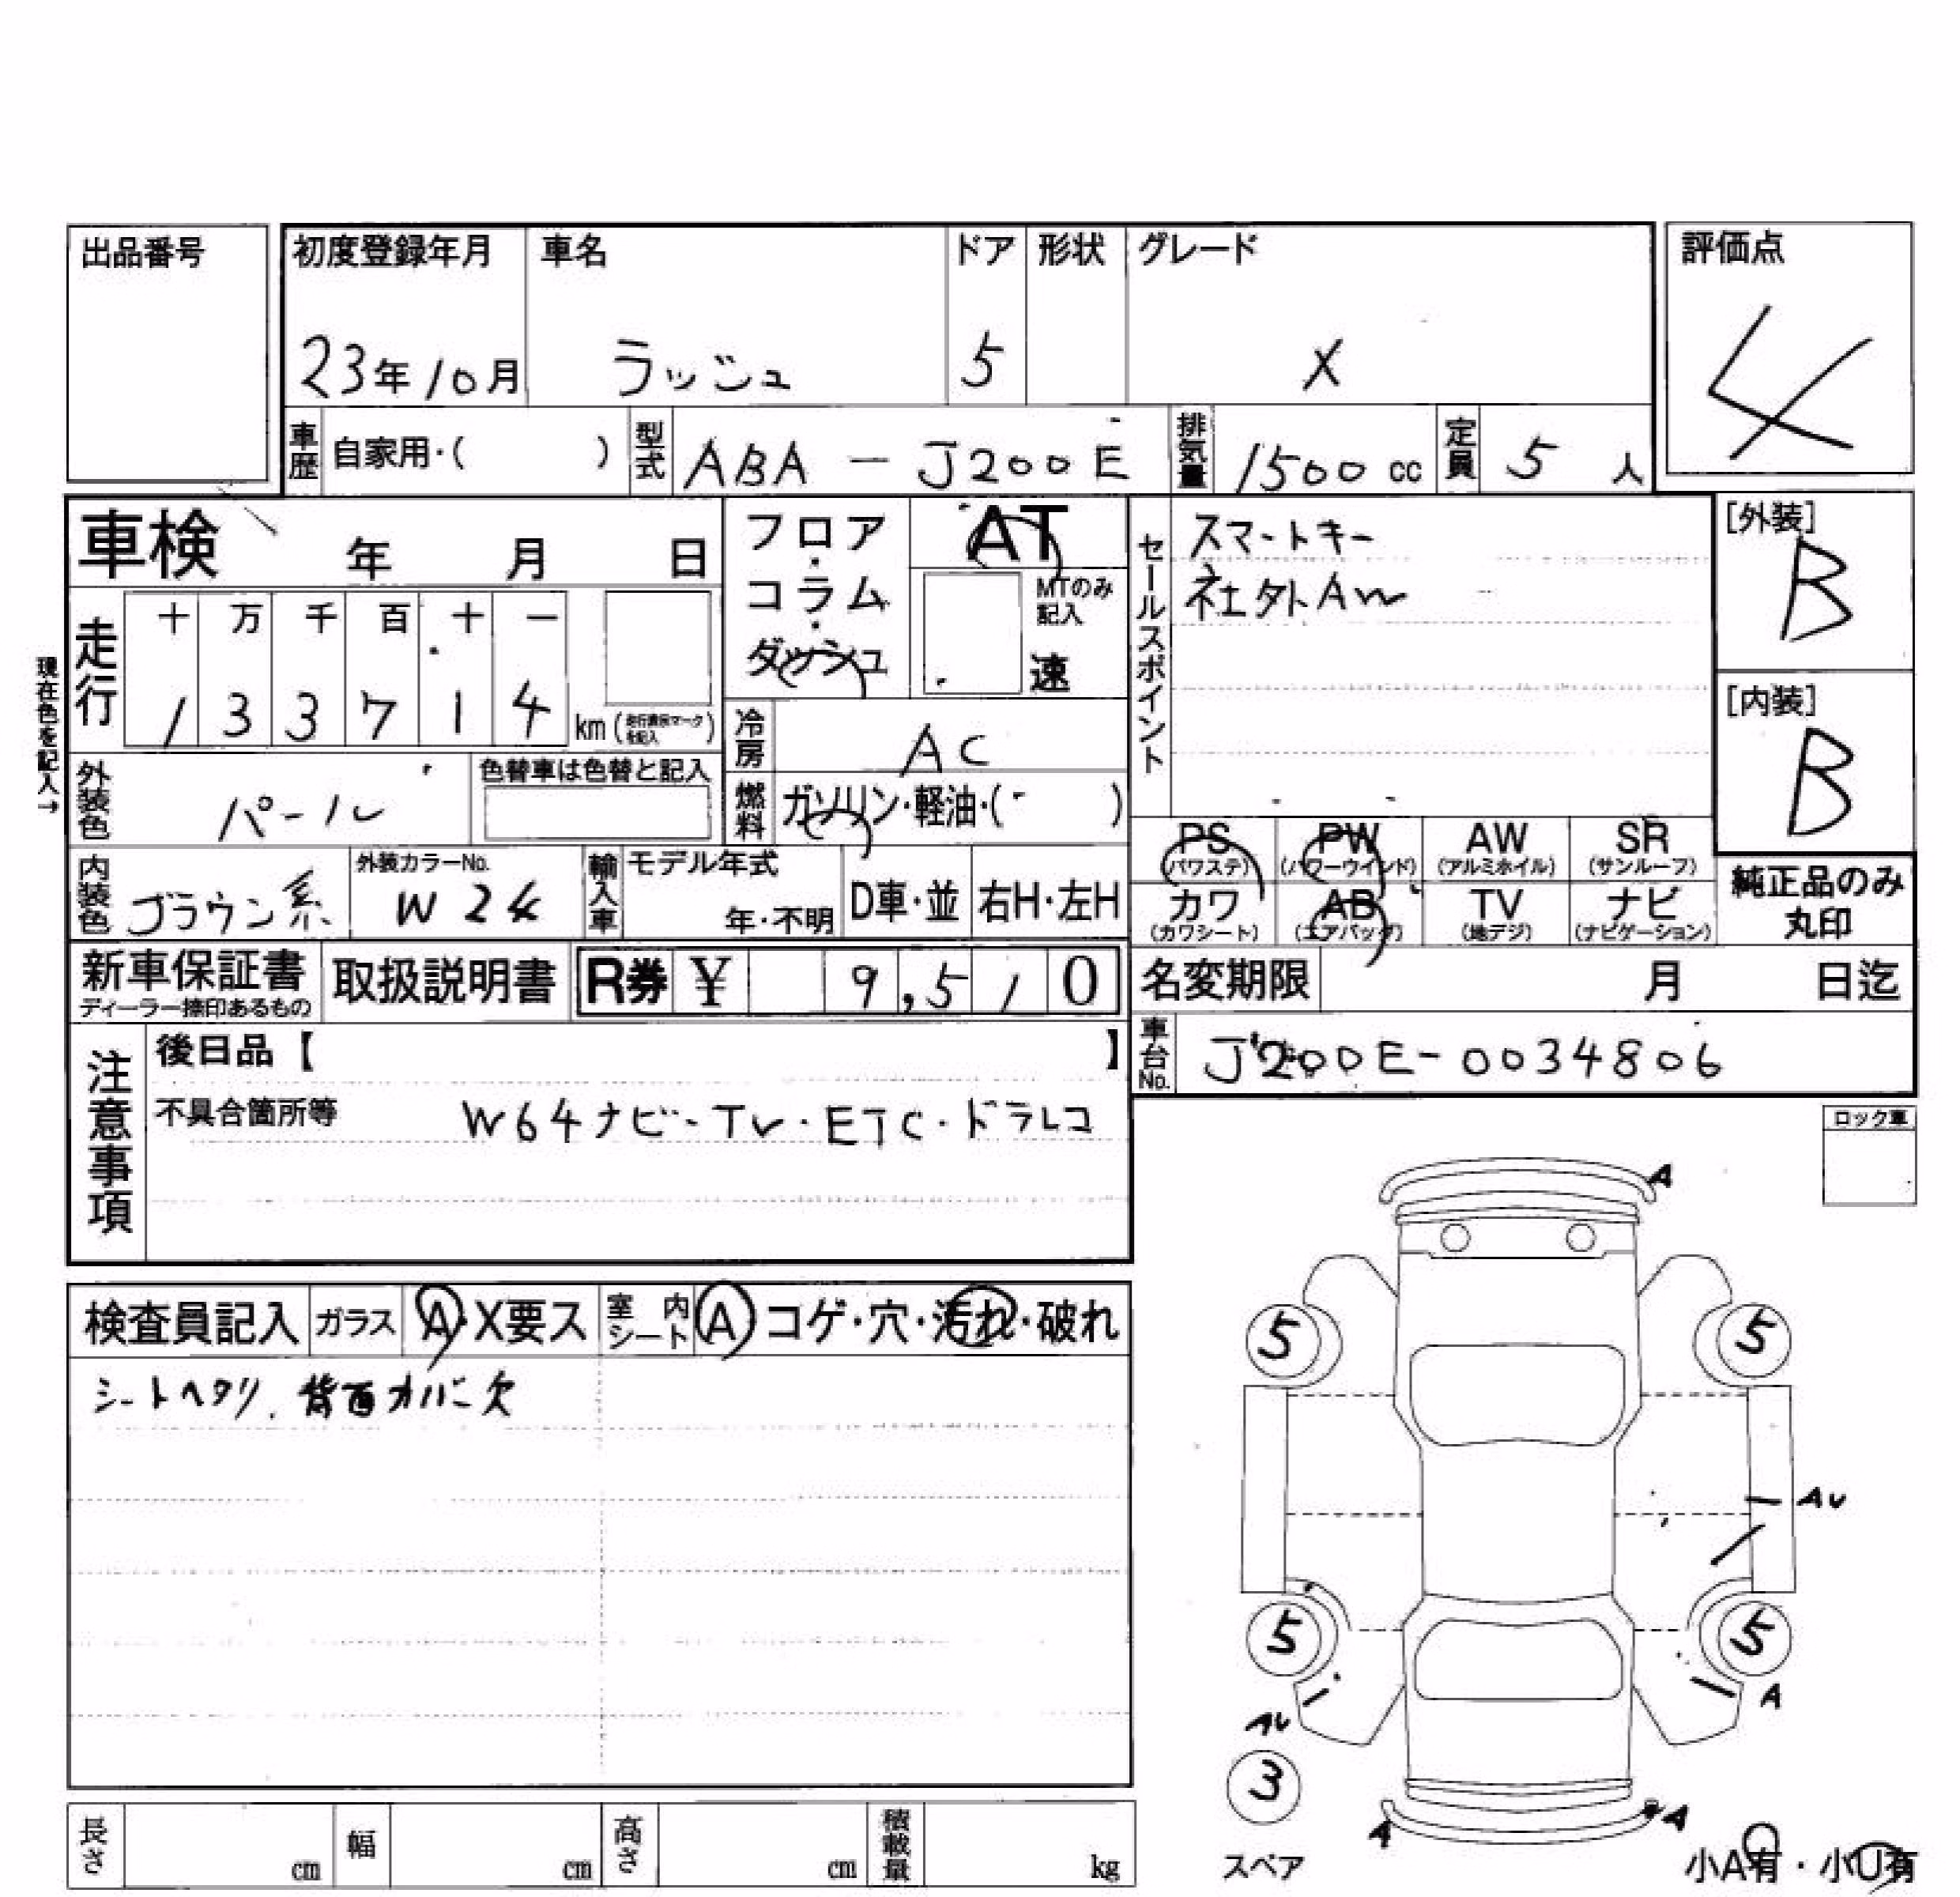 出品番号
初度登録年月 車名 ドア 形状 グレード 評価点
23年10月 ラッシュ 5 X 4
車歴 自家用・( ) 型式 ABA-J200E 排気量 1500cc 定員 5人
車検 年 月 日
フロア・コラム・ダッシュ AT
MTのみ記入 速
セールスポイント
スマートキー
社外AW
[外装]
B
[内装]
B
現在色を記入→
走行 十 万 千 百 十 一
1 3 3 7 1 4 km
冷房 AC
外装色 パール 色替車は色替と記入
燃料 ガソリン・軽油・( )
PS (パワステ) PW (パワーウインド) AW (アルミホイル) SR (サンルーフ)
カワ (カワシート) AB (エアバッグ) TV (地デジ) ナビ (ナビゲーション)
純正品のみ
丸印
内装色 ブラウン系 外装カラーNo. W24 輸入車 モデル年式 年・不明 D車・並 右H・左H
新車保証書 取扱説明書 R券 ¥ 9,510
ディーラー捺印あるもの
名変期限 月 日迄
車台No. J200E-0034806
注意事項
後日品【 】
不具合箇所等 W64ナビ・TV・ETC・ドラレコ
ロック車
検査員記入 ガラス A・X要ス 室内シート A コゲ・穴・汚れ・破れ
シートヘタリ、背面カバー欠
A
5 5
AU
5 5
AU A
3
A A
スペア
小A有・小U有
長さ cm 幅 cm 高さ cm 積載量 kg